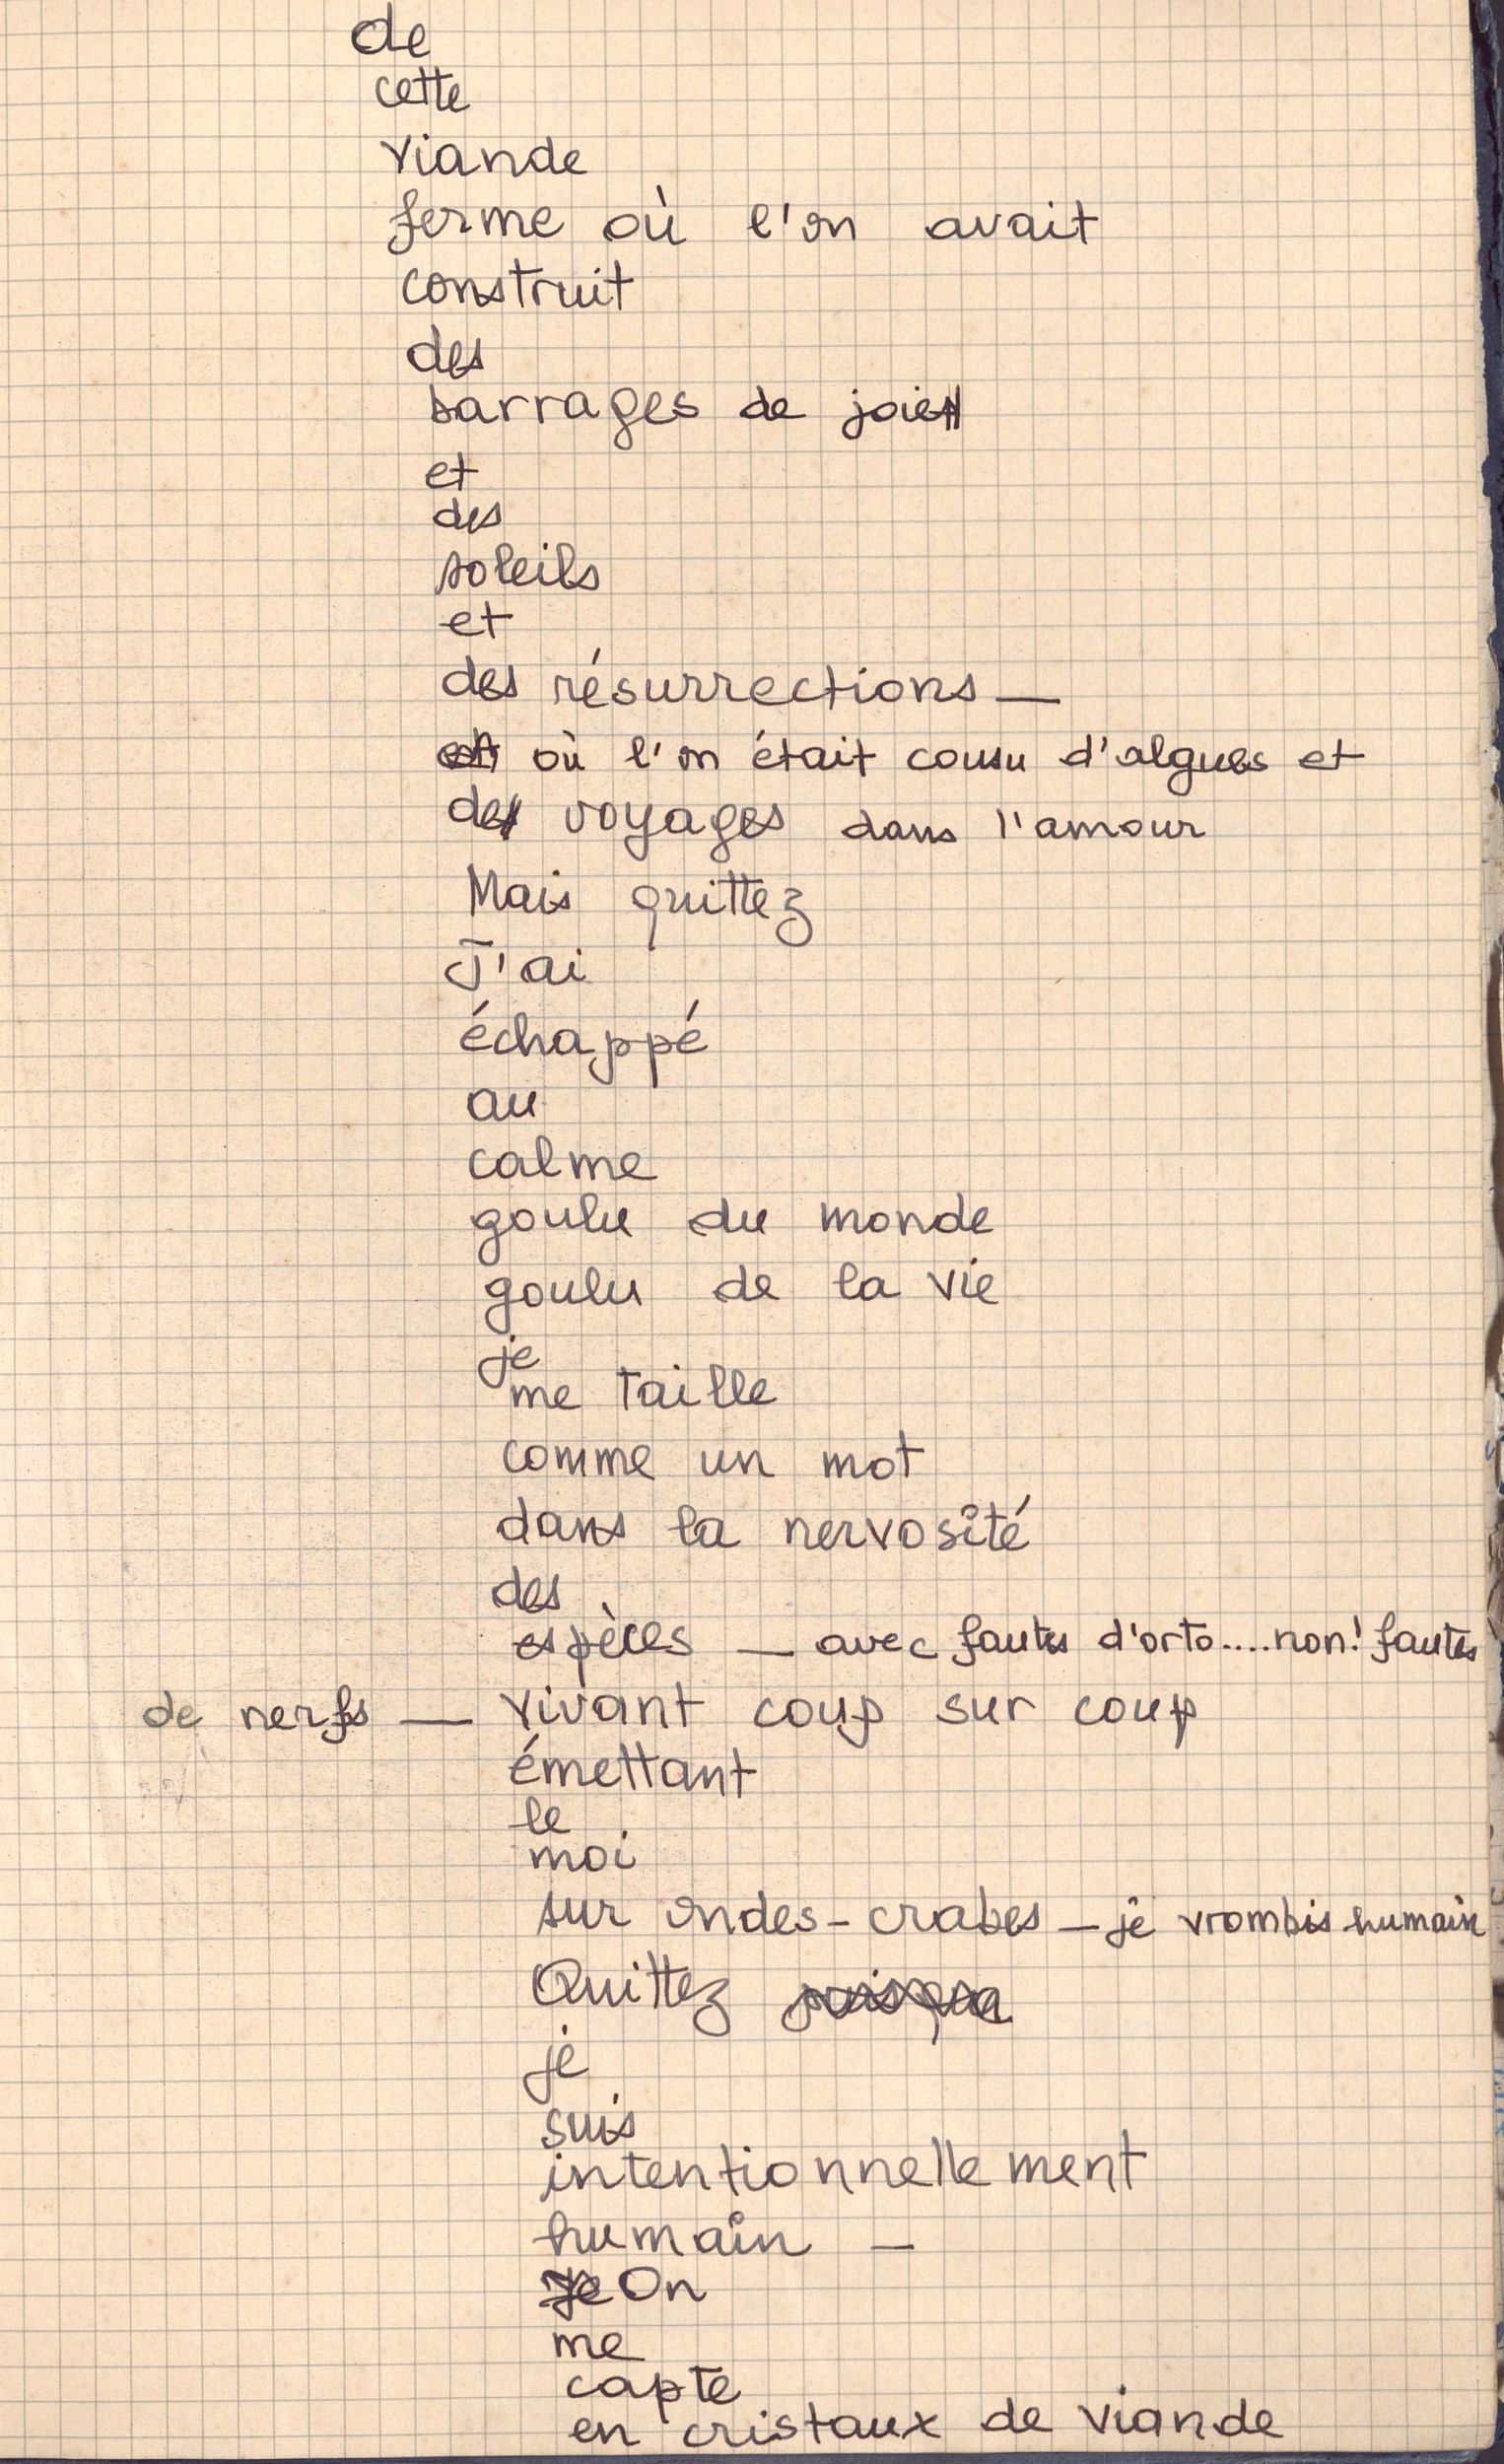 de
cette
viande
ferme où l'on avait
construit
des
barrages de joie
et
des
soleils
et
des résurrections —
où l'on était cousu d'algues et
de voyages dans l'amour
Mais quittez
J'ai
échappé
au
calme
goulu du monde
goulu de la vie
je
me taille
comme un mot
dans la nervosité
des
espèces — avec fautes d'orto....non! fautes
de nerfs — vivant coup sur coup
émettant
le
moi
sur ondes-crabes — je vrombis humain
Quittez puisque
je
suis
intentionnellement
humain —
Je On
me
capte
en cristaux de viande